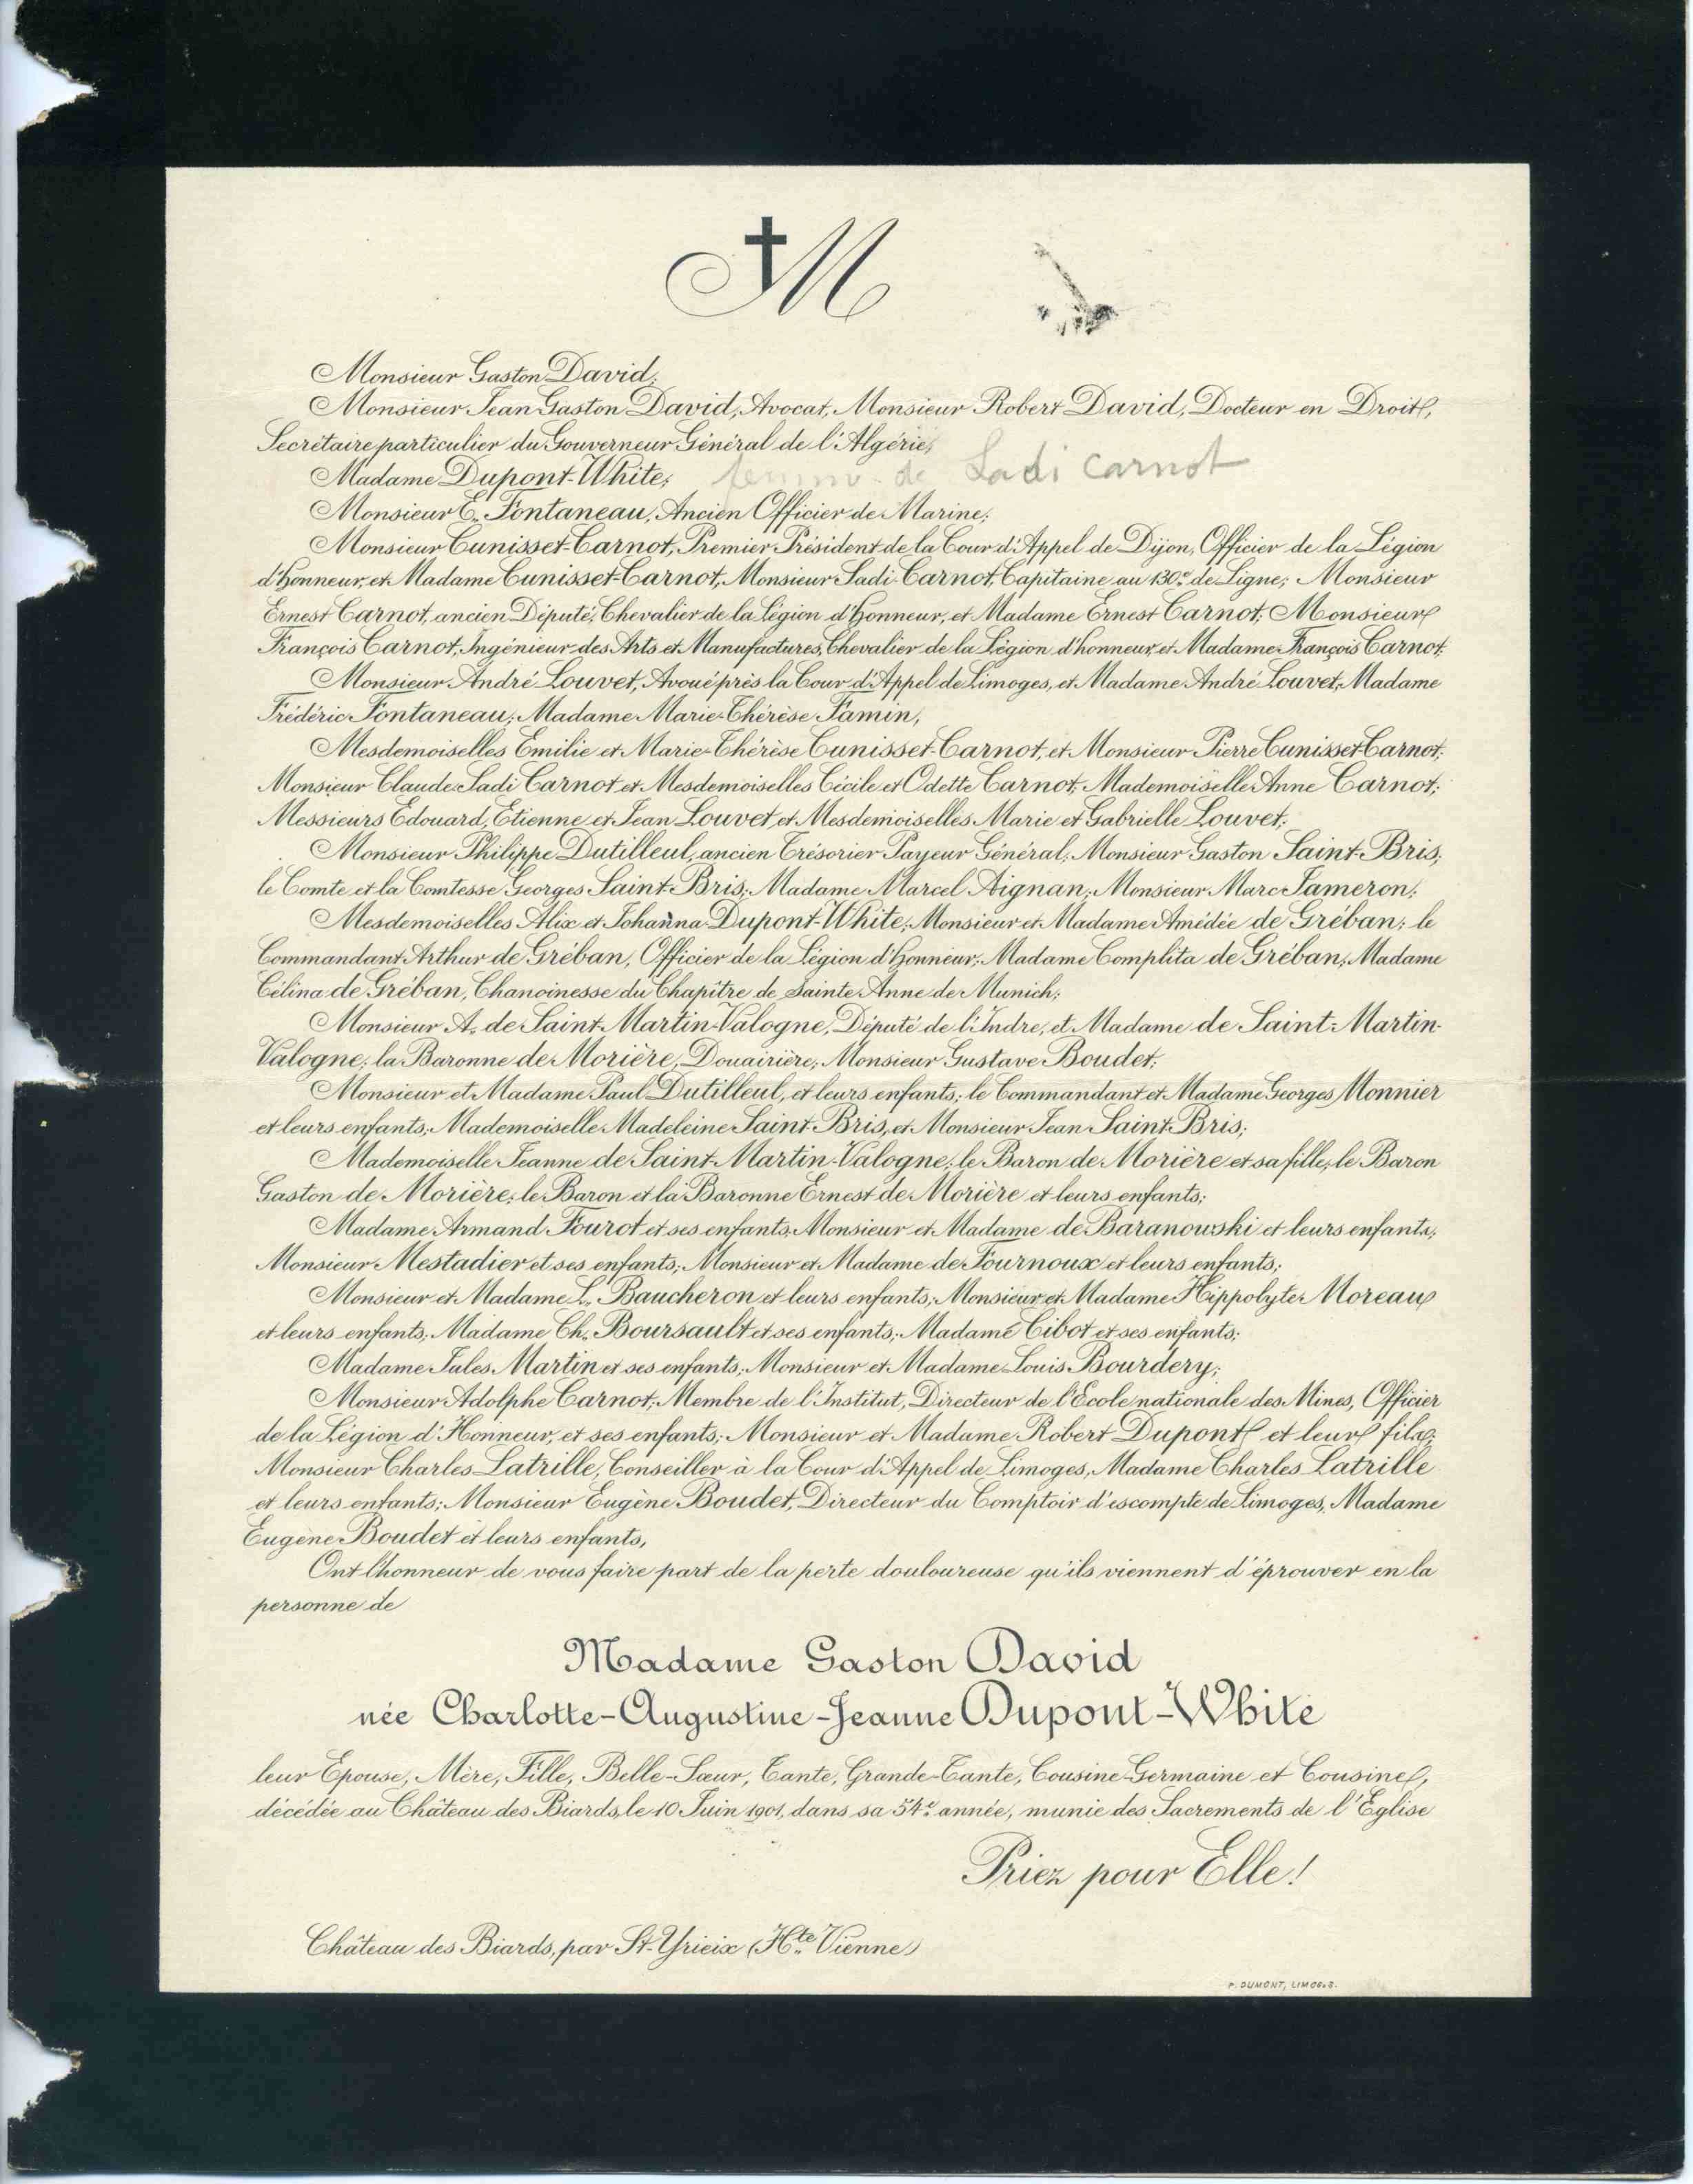 M
Monsieur Gaston David;
Monsieur Jean Gaston David, Avocat, Monsieur Robert David, Docteur en Droit,
Secrétaire particulier du Gouverneur Général de l'Algérie;
Madame Dupont-White; femme de Sadi Carnot
Monsieur E. Fontaneau, Ancien Officier de Marine;
Monsieur Cunisset-Carnot, Premier Président de la Cour d'Appel de Dijon, Officier de la Légion
d'honneur, et Madame Cunisset-Carnot, Monsieur Sadi Carnot, Capitaine au 130e de Ligne; Monsieur
Ernest Carnot, ancien Député, Chevalier de la Légion d'honneur, et Madame Ernest Carnot; Monsieur
François Carnot, Ingénieur des Arts et Manufactures, Chevalier de la Légion d'honneur, et Madame François Carnot;
Monsieur André Louvet, Avoué près la Cour d'Appel de Limoges, et Madame André Louvet; Madame
Frédéric Fontaneau; Madame Marie-Thérèse Famin,
Mesdemoiselles Emilie et Marie-Thérèse Cunisset-Carnot, et Monsieur Pierre Cunisset-Carnot;
Monsieur Claude Sadi Carnot et Mesdemoiselles Cécile et Odette Carnot; Mademoiselle Anne Carnot;
Messieurs Edouard, Etienne et Jean Louvet, et Mesdemoiselles Marie et Gabrielle Louvet;
Monsieur Philippe Dutilleul, ancien Trésorier Payeur Général; Monsieur Gaston Saint-Bris;
le Comte et la Comtesse Georges Saint-Bris; Madame Marcel Aignan; Monsieur Marc Jameron;
Mesdemoiselles Alix et Johanna Dupont-White; Monsieur et Madame Amédée de Gréban; le
Commandant Arthur de Gréban, Officier de la Légion d'honneur; Madame Complita de Gréban; Madame
Célina de Gréban, Chanoinesse du Chapitre de Sainte Anne de Munich;
Monsieur A. de Saint-Martin-Valogne, Député de l'Indre, et Madame de Saint-Martin-
Valogne; la Baronne de Morière, Douairière; Monsieur Gustave Boudet;
Monsieur et Madame Paul Dutilleul, et leurs enfants; le Commandant et Madame Georges Monnier
et leurs enfants; Mademoiselle Madeleine Saint-Bris, et Monsieur Jean Saint-Bris;
Mademoiselle Jeanne de Saint-Martin-Valogne; le Baron de Morière et sa fille; le Baron
Gaston de Morière; le Baron et la Baronne Ernest de Morière et leurs enfants;
Madame Armand Fourot et ses enfants; Monsieur et Madame de Baranowski et leurs enfants;
Monsieur Mestadier et ses enfants; Monsieur et Madame de Fournoux et leurs enfants;
Monsieur et Madame L. Baucheron et leurs enfants; Monsieur et Madame Hippolyte Moreau
et leurs enfants; Madame Ch. Boursault et ses enfants; Madame Cibot et ses enfants;
Madame Jules Martin et ses enfants; Monsieur et Madame Louis Bourdery;
Monsieur Adolphe Carnot, Membre de l'Institut, Directeur de l'Ecole nationale des Mines, Officier
de la Légion d'Honneur, et ses enfants; Monsieur et Madame Robert Dupont et leur fils;
Monsieur Charles Latrille, Conseiller à la Cour d'Appel de Limoges, Madame Charles Latrille
et leurs enfants; Monsieur Eugène Boudet, Directeur du Comptoir d'escompte de Limoges, Madame
Eugène Boudet et leurs enfants,
Ont l'honneur de vous faire part de la perte douloureuse qu'ils viennent d'éprouver en la
personne de
Madame Gaston David
née Charlotte-Augustine-Jeanne Dupont-White
leur Epouse, Mère, Fille, Belle-Sœur, Tante, Grande-Tante, Cousine-Germaine et Cousine,
décédée au Château des Biards, le 10 Juin 1901, dans sa 54e année, munie des Sacrements de l'Eglise
Priez pour Elle!
Château des Biards, par St-Yrieix (Hte Vienne)
P. DUMONT, LIMOGES.